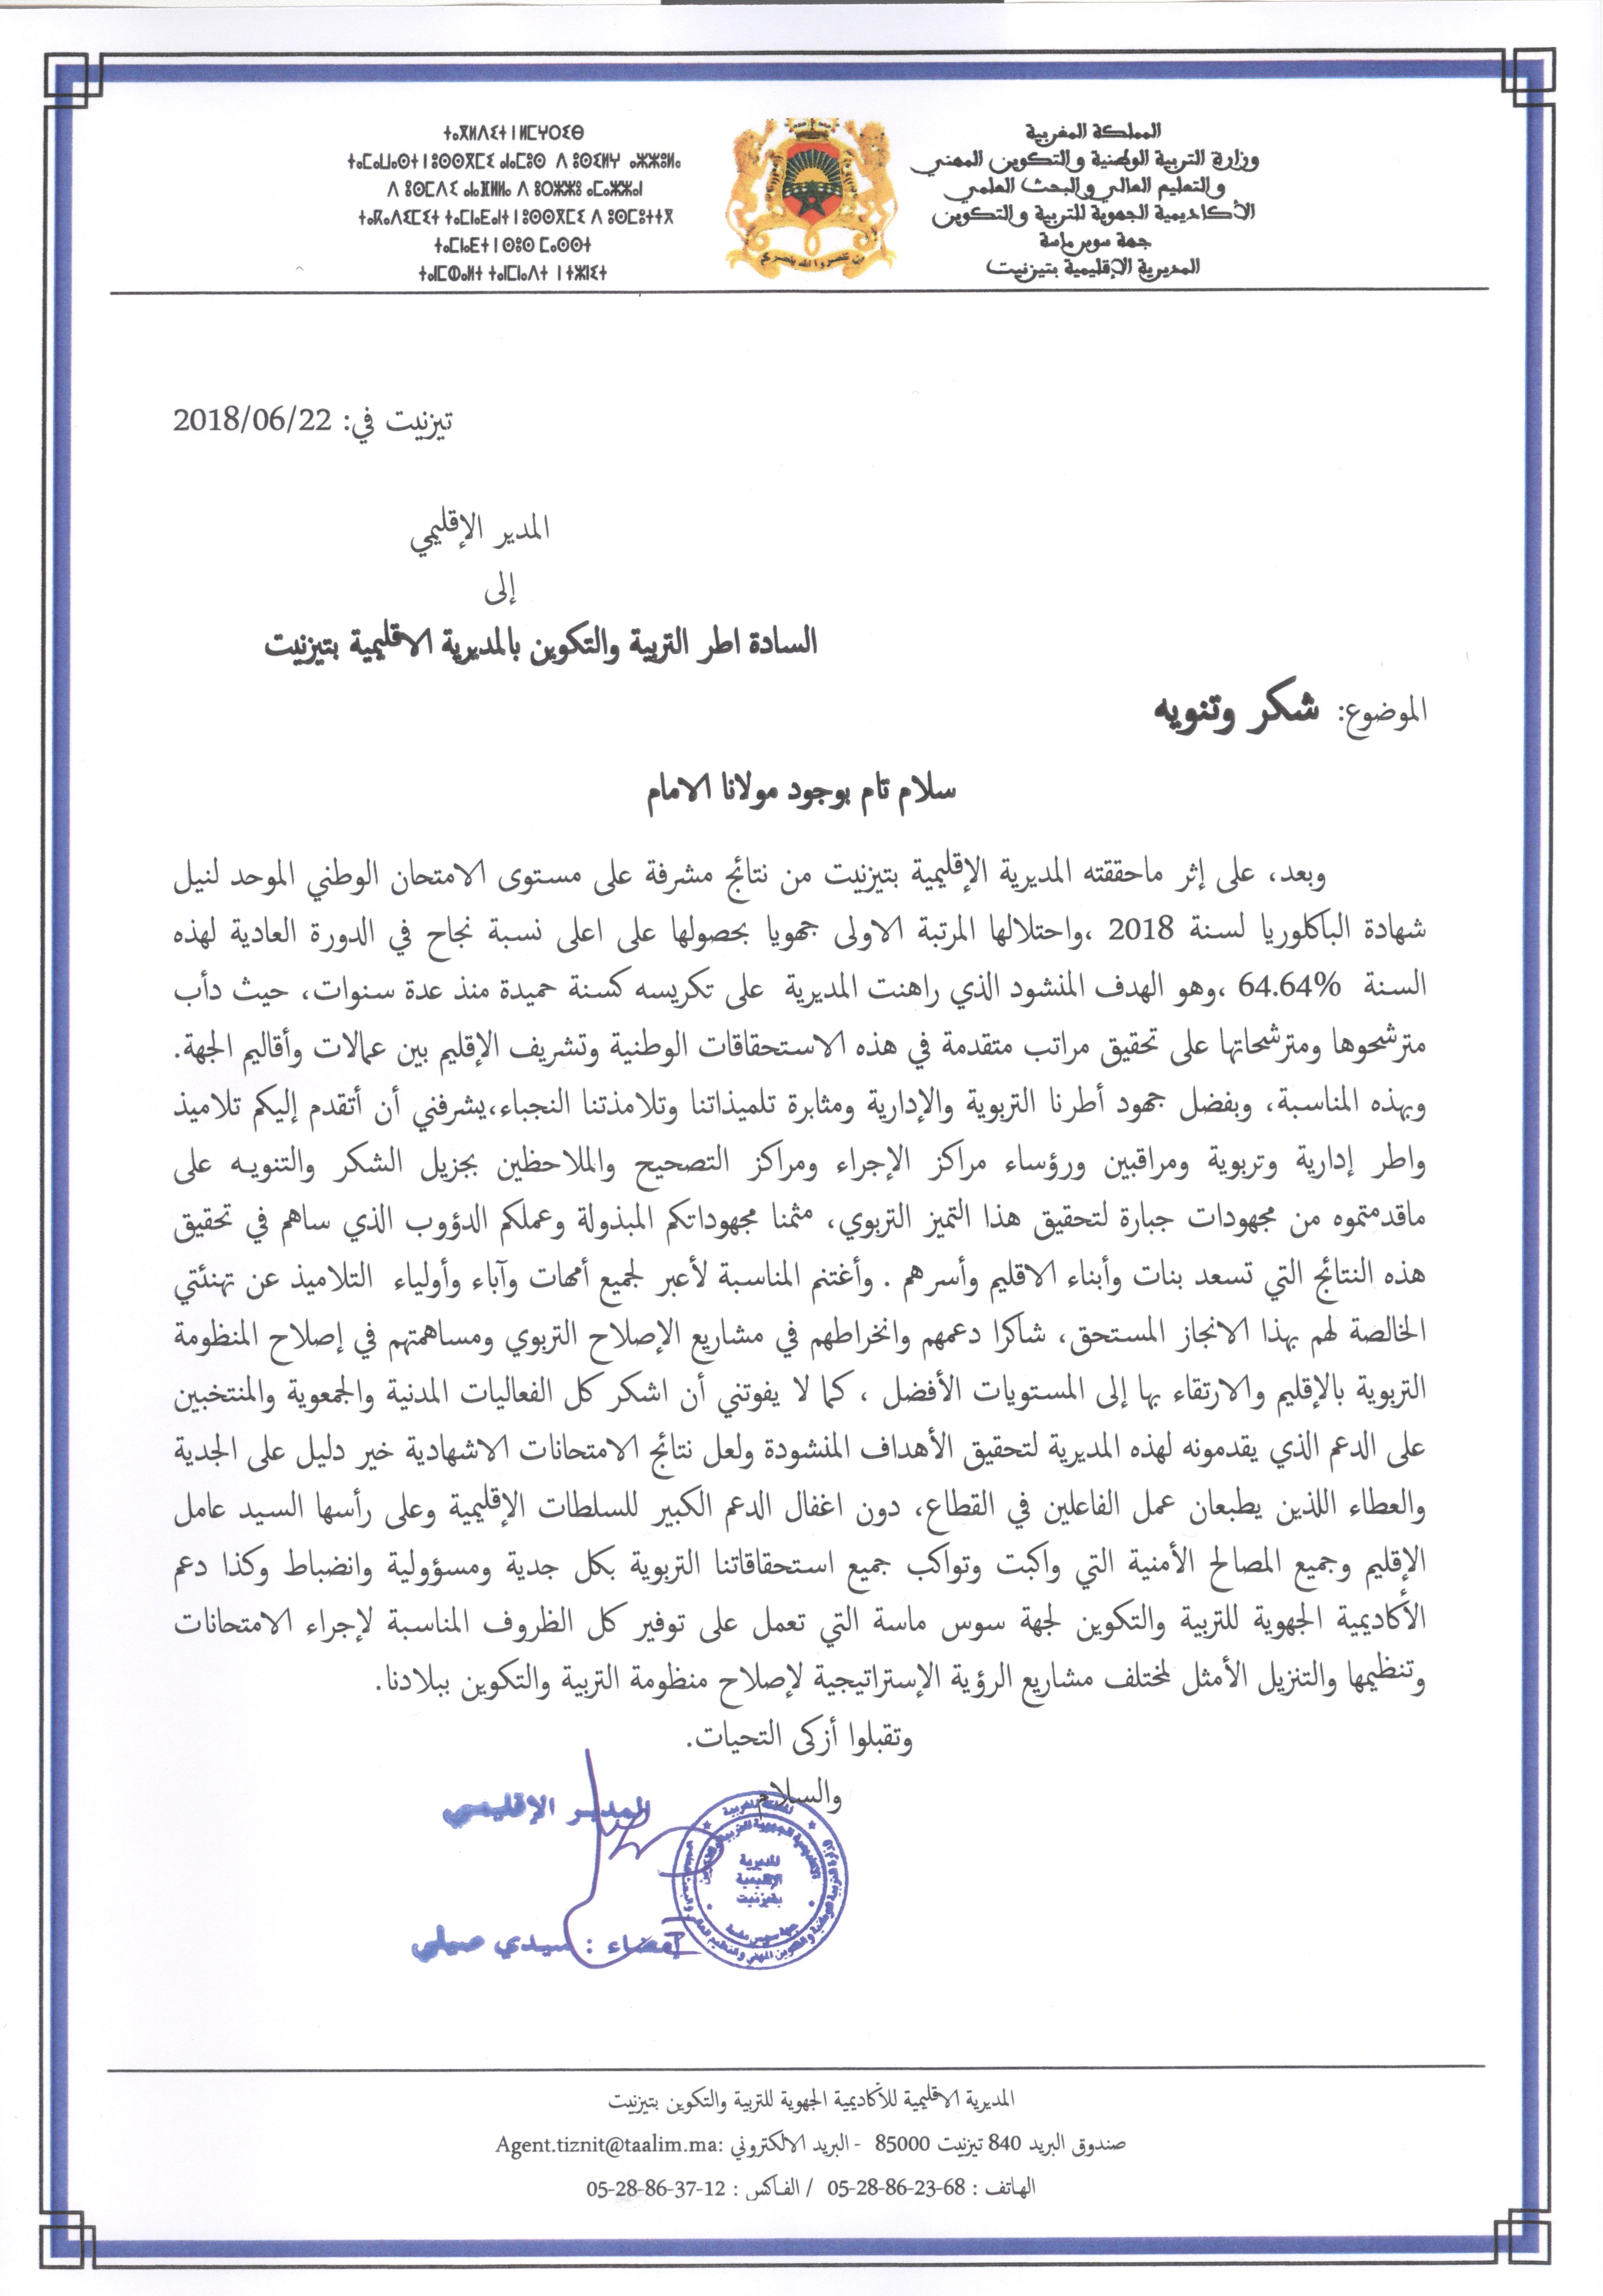 المملكة المغربية
وزارة التربية الوطنية والتكوين المهني
والتعليم العالي والبحث العلمي
الأكاديمية الجهوية للتربية والتكوين
جهة سوس ماسة
المديرية الإقليمية بتيزنيت
ⵜⴰⴳⵍⴷⵉⵜ ⵏ ⵍⵎⵖⵔⵉⴱ
ⵜⴰⵎⴰⵡⴰⵙⵜ ⵏ ⵓⵙⵙⴳⵎⵉ ⴰⵏⴰⵎⵓⵔ ⴷ ⵓⵙⵎⵓⵜⵜⴳ ⴰⵣⵣⵓⵍⴰⵏ
ⴷ ⵓⵙⵍⵎⴷ ⴰⵏⴰⴼⵍⵍⴰ ⴷ ⵓⵔⵣⵣⵓ ⴰⵎⴰⵣⵣⴰⵏ
ⵜⴰⴽⴰⴷⵉⵎⵉⵜ ⵜⴰⵎⵏⴰⴹⴰⵏⵜ ⵏ ⵓⵙⵙⴳⵎⵉ ⴷ ⵓⵙⵎⵓⵜⵜⴳ
ⵜⴰⵎⵏⴰⴹⵜ ⵏ ⵙⵓⵙ ⵎⴰⵙⵙⵜ
ⵜⴰⵏⵎⵀⴰⵍⵜ ⵜⴰⵏⵎⵏⴰⴷⵜ ⵏ ⵜⵣⵏⵉⵜ
من تنصروا الله ينصركم
تيزنيت في: 2018/06/22
المدير الإقليمي
إلى
السادة اطر التربية والتكوين بالمديرية الاقليمية بتيزنيت
الموضوع: شكر وتنويه
سلام تام بوجود مولانا الامام
وبعد، على إثر ماحققته المديرية الإقليمية بتيزنيت من نتائج مشرفة على مستوى الامتحان الوطني الموحد لنيل
شهادة الباكلوريا لسنة 2018 ،واحتلالها المرتبة الاولى جهويا بحصولها على اعلى نسبة نجاح في الدورة العادية لهذه
السنة 64.64% ،وهو الهدف المنشود الذي راهنت المديرية على تكريسه كسنة حميدة منذ عدة سنوات، حيث دأب
مترشحوها ومترشحاتها على تحقيق مراتب متقدمة في هذه الاستحقاقات الوطنية وتشريف الإقليم بين عمالات وأقاليم الجهة.
وبهذه المناسبة، وبفضل جهود أطرنا التربوية والإدارية ومثابرة تلميذاتنا وتلامذتنا النجباء،يشرفني أن أتقدم إليكم تلاميذ
واطر إدارية وتربوية ومراقبين ورؤساء مراكز الإجراء ومراكز التصحيح والملاحظين بجزيل الشكر والتنويه على
ماقدمتموه من مجهودات جبارة لتحقيق هذا التميز التربوي، مثمنا مجهوداتكم المبذولة وعملكم الدؤوب الذي ساهم في تحقيق
هذه النتائج التي تسعد بنات وأبناء الاقليم وأسرهم . وأغتنم المناسبة لأعبر لجميع أمهات وآباء وأولياء التلاميذ عن تهنئتي
الخالصة لهم بهذا الانجاز المستحق، شاكرا دعمهم وانخراطهم في مشاريع الإصلاح التربوي ومساهمتهم في إصلاح المنظومة
التربوية بالإقليم والارتقاء بها إلى المستويات الأفضل ، كما لا يفوتني أن اشكر كل الفعاليات المدنية والجمعوية والمنتخبين
على الدعم الذي يقدمونه لهذه المديرية لتحقيق الأهداف المنشودة ولعل نتائج الامتحانات الاشهادية خير دليل على الجدية
والعطاء اللذين يطبعان عمل الفاعلين في القطاع، دون اغفال الدعم الكبير للسلطات الإقليمية وعلى رأسها السيد عامل
الإقليم وجميع المصالح الأمنية التي واكبت وتواكب جميع استحقاقاتنا التربوية بكل جدية ومسؤولية وانضباط وكذا دعم
الأكاديمية الجهوية للتربية والتكوين لجهة سوس ماسة التي تعمل على توفير كل الظروف المناسبة لإجراء الامتحانات
وتنظيمها والتنزيل الأمثل لمختلف مشاريع الرؤية الإستراتيجية لإصلاح منظومة التربية والتكوين ببلادنا.
وتقبلوا أزكى التحيات.
والسلام
المدير الإقليمي
المديرية
الإقليمية
بتيزنيت
إمضاء : سيدي صيلي
المديرية الاقليمية للأكاديمية الجهوية للتربية والتكوين بتيزنيت
صندوق البريد 840 تيزنيت 85000 - البريد الالكتروني :Agent.tiznit@taalim.ma
الهاتف : 05-28-86-23-68 / الفاكس : 05-28-86-37-12